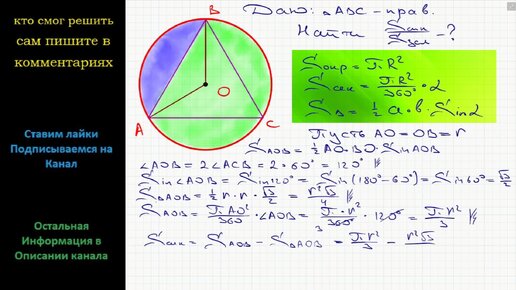 кто смог решить
сам пишите в
комментариях
Ставим лайки
Подписываемся на
Канал
Остальная
Информация в
Описании канала
B
O
A
C
Дано: △ABC - прав.
Найти Sсек/Sзал - ?
Sокр = πR²
Sсек = πR²/360° · α
S△ = 1/2 a·b·Sinα
Пусть AO = OB = r
S△AOB = 1/2 AO·BO·Sin AOB
∠AOB = 2∠ACB = 2·60° = 120°
Sin∠AOB = Sin120° = Sin(180°-60°) = Sin60° = √3/2
S△AOB = 1/2 r·r·√3/2 = r²√3/4
SAOB = πAO²/360° · ∠AOB = π·r²/360° · 120° = πr²/3
Sсек = SAOB - S△AOB = πr²/3 - r²√3